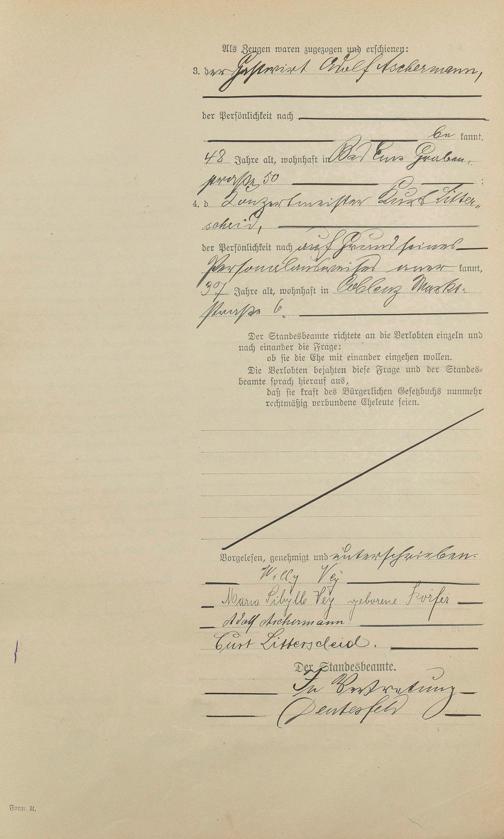 Als Zeugen waren zugezogen und erschienen:
3. der Gastwirt Adolf Aschermann,
der Persönlichkeit nach
be kannt,
48 Jahre alt, wohnhaft in Bad Ems Graben-
straße 50 ;
4. d Konzertmeister Kurt Litter-
scheid,
der Persönlichkeit nach auf Grund seines
Personalausweises aner kannt,
37 Jahre alt, wohnhaft in Coblenz Markt-
straße 6.
Der Standesbeamte richtete an die Verlobten einzeln und
nach einander die Frage:
ob sie die Ehe mit einander eingehen wollen.
Die Verlobten bejahten diese Frage und der Standes-
beamte sprach hierauf aus,
daß sie kraft des Bürgerlichen Gesetzbuchs nunmehr
rechtmäßig verbundene Eheleute seien.
Vorgelesen, genehmigt und unterschrieben:
Willy Vey
Maria Sibylle Vey geborene
Adolf Aschermann
Curt Litterscheid.
Der Standesbeamte.
In Vertretung